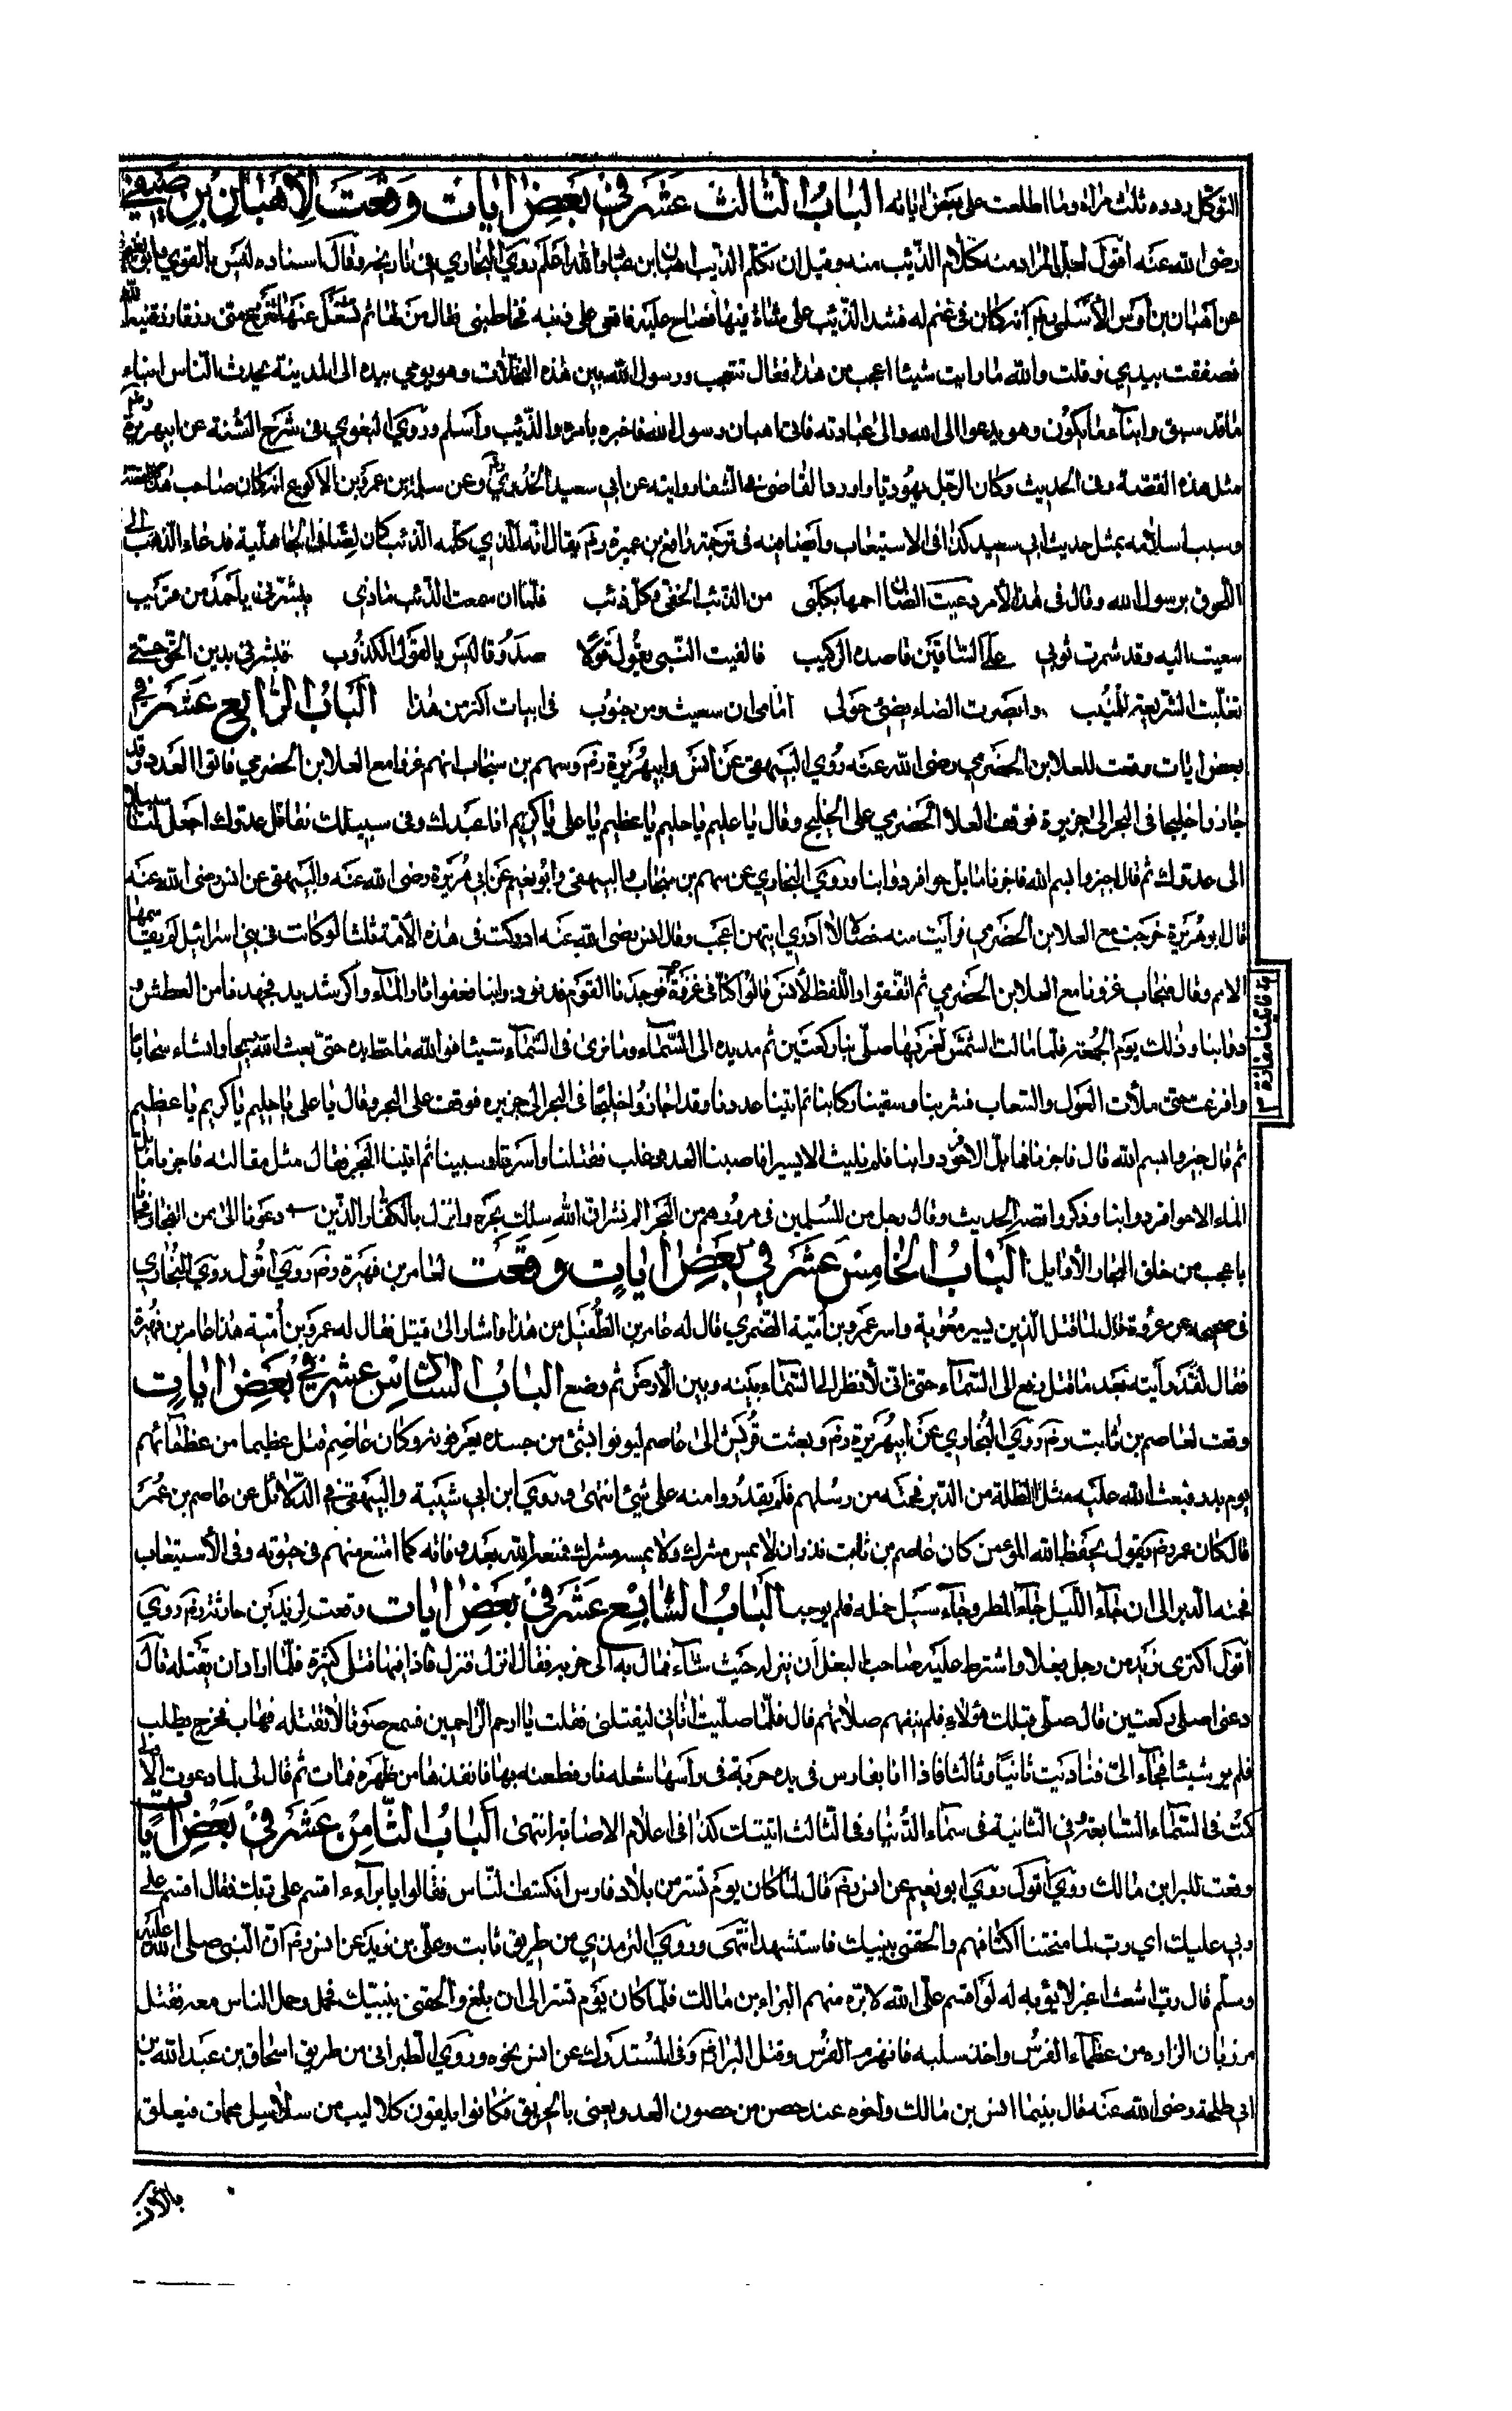 التوكل رده ثلث مراة وما اطلعت على بعض اياته الباب الثالث عشر في بعض ايات وقعت لاهبان بن صيفي
رضى الله عنه اقول لعل المراد منه كلام الذئب منه وقيل ان تكلم الذئب اهبان ابن والله اعلم روى البخاري في تاريخه وقال اسناده ليس بالقوي وابو نعيم
عن اهبان بن اوس الأسلمي انه كان في غنم له فشد الذئب على شاة منها فصاح عليه فاقعى على ذنبه فخاطبني فقال من لها يوم تشغل عنها
فصفقت بيدي وقلت والله ما رايت شيئا اعجب من هذا فقال تتعجب ورسول الله بين هذه النخلات وهو يومي بيده الى المدينة يحدث الناس انباء
ما قد سبق وانباء ما يكون وهو يدعوا الى الله والى عبادته فاتى اهبان رسول الله فاخبره بامره والذئب واسلم وروى البغوي في شرح السنة عن ابيهريرة
مثل هذه القصة وفى الحديث وكان الرجل يهوديا واورد القاضى في الشفا روايته عن ابى سعيد الخدري وعن سلمة بن عمرو بن الاكوع انه كان صاحب هذه القصة
وسبب اسلامه بمثل حديث ابى سعيد كذا فى الاستيعاب وايضا منه فى ترجمة رافع بن عميرة رضي يقال انه الذي كلمه الذئب كان لصا فى الجاهلية فدعاه الذئب الى
اللحوق برسول الله وقال فى هذا الأمر رعيت الضان احميها بكلبى من الذئب الخفي وكل ذئب فلما ان سمعت الذئب نادى يبشرني باحمد من قريب
سعيت اليه وقد شمرت ثوبي على الساقين قاصده الركيب فالفيت النبى يقول قولا صدوقا ليس بالقول الكذوب فبشرني بدين الحق حتى
تبينت الشريعة للمنيب وابصرت الضياء يضئ حولى امامى ان سعيت ومن جنوب فى ابيات اكثر من هذا الباب الرابع عشر في
بعض ايات وقعت للعلا بن الحضرمي رضى الله عنه روى البيهقي عن انس وابيهريرة رضي وسهم بن منجاب انهم غزوا مع العلا بن الحضرمي فاتوا العدو وقد
جاوزوا خليجا فى البحر الى جزيرة فوقف العلا الحضرمي على الخليج وقال يا عليم يا حليم يا عظيم يا على يا كريم انا عبدك وفى سبيلك نقاتل عدوك اجعل لنا سبيلا
الى عدوك ثم قال اجيزوا بسم الله فاجزنا ما بل حوافر دوابنا وروى البخاري عن سهم بن منجاب والبيهقى وابو نعيم عن ابى هريرة رضى الله عنه والبيهقى عن انس رضى الله عنه
قال ابو هريرة خرجت مع العلا بن الحضرمي فرايت منه خصالا لا ادري ايتهن اعجب وقال انس رضى الله عنه ادركت فى هذه الامة ثلثا لو كانت فى بنى اسرائيل
الامم وقال منجاب غزونا مع العلا بن الحضرمي ثم اتفقوا واللفظ لأنس قالوا كنا فى غزوة فوجدنا القوم قد بعفوا اثار الماء والحر شديد فجهدنا من العطش
دوابنا وذلك يوم الجمعة فلما مالت الشمس لغربها صلى بنا ركعتين ثم مد يده الى السماء وما نرى فى السماء شيئا فوالله ما حط يده حتى بعث الله ريحا وانشاء سحابا
وافرغت حتى ملأت والشعاب فشربنا وسقينا ركابنا ثم اتينا عدونا وقد جاوزوا خليجا فى البحر الى جزيره فوقف على البحر وقال يا على يا حليم يا كريم يا عظيم
ثم قال جيزوا بسم الله قال فاجزنا ما بل دوابنا فلم نلبث الا يسيرا فاصبنا العدو فقتلنا واسرنا وسبينا ثم اتينا البحر فقال مثل مقالته فاجزنا ما بل
الماء الا حوافر دوابنا وذكروا تمة الحديث وقال رجل من المسلمين فى مرورهم من البحر الم تر ان الله سلك بحره وانزل بالكفار دعونا الى من البحار
باعجب من فلق البحار الأوايل الباب الخامس عشر في بعض ايات وقعت لعامر بن فهيرة رضي روى اقول روى البخاري
فى صحيحه عن عروة قال لما قتل الذين ببير معونة واسر عمرو بن امية الضمري قال له عامر بن الطفيل من هذا واشار الى قتيل فقال له عمرو بن أمية هذا عامر بن فهيرة
فقال لقد رأيته بعد ما قتل رفع الى السماء حتى انى لأنظر الى السماء بينه وبين الأرض ثم وضع الباب السادس عشر في بعض ايات
وقعت لعاصم بن ثابت رضي روى البخاري عن ابيهريرة رضي وبعثت قريش الى عاصم ليوتوا بشئ من جسده يعرفونه وكان عاصم قتل عظيما من عظمائهم
يوم بدر فبعث الله عليه مثل الظلة من الدبر فحمته من رسلهم فلم يقدروا منه على شئ انتهى وروى ابن ابى شيبة والبيهقى فى الدلائل عن عاصم بن عمر
قال كان عمر رضي يقول يحفظ الله المؤمن كان عاصم بن ثابت نذر ان لا يمس مشرك ولا يمسه مشرك فمنعه الله بعد وفاته كما امتنع منهم فى حيوته وفى الاستيعاب
فحمته الدبر الى ان جاء الليل جاء المطر وجاء سيل حمله فلم يوجد الباب السابع عشر في بعض ايات وقعت لزيد بن حارثة رضي روي
اقول اكترى زيد من رجل بغلا واشترط عليه صاحب البغل ان ينزله حيث شاء فمال به الى خربه فقال انزل فنزل فاذا فيها قتلى كثيرة فلما اراد ان يقتله قال
دعنى اصلى ركعتين قال صلى قبلك هؤلاء فلم ينفعهم صلاتهم قال فلما صليت اتانى ليقتلنى فقلت يا ارحم الراحمين فسمع صوتا لا تقتله فهاب فخرج يطلب
فلم ير شيئا فجاء الى فناديت ثانيا وثالثا فاذا انا بفارس فى يده حربة فى رأسها شعله نار فطعنه بها فانفذها من ظهره فمات ثم قال لى لما دعوت
كنت فى السماء السابعة وفى الثانية فى سماء الدنيا وفى الثالث اتيتك كذا فى اعلام الاصابة انتهى الباب الثامن عشر في بعض ايات
وقعت للبرا بن مالك روي اقول روى ابو نعيم عن انس رضي قال لما كان يوم تستر من بلاد فارس انكشف الناس فقالوا يا براء اقسم على ربك فقال اقسم على
ربي عليك اي رب لما منحتنا اكتافهم والحقنى بنبيك فاستشهد انتهى وروى الترمذي من طريق ثابت وعلى بن زيد عن انس رضي ان النبى صلى الله عليه
وسلم قال رب اشعث اغبر لا يؤبه له لو اقسم على الله لابره منهم البراء بن مالك فلما كان يوم تستر الى ان بلغ والحقنى بنبيك فحمل وحمل الناس معه فقتل
مرزبان الزاره من عظماء الفرس واخذ سلبه فانهزم الفرس وقتل البراء وفى المستدرك عن انس نحوه وروى الطبرانى من طريق اسحاق بن عبد الله بن
ابى طلحة رضى الله عنه قال بينما انس بن مالك واخوه عند حصن من حصون العدو يعنى بالحريق فكانوا يلقون كلاليب من سلاسل محماة فتعلق